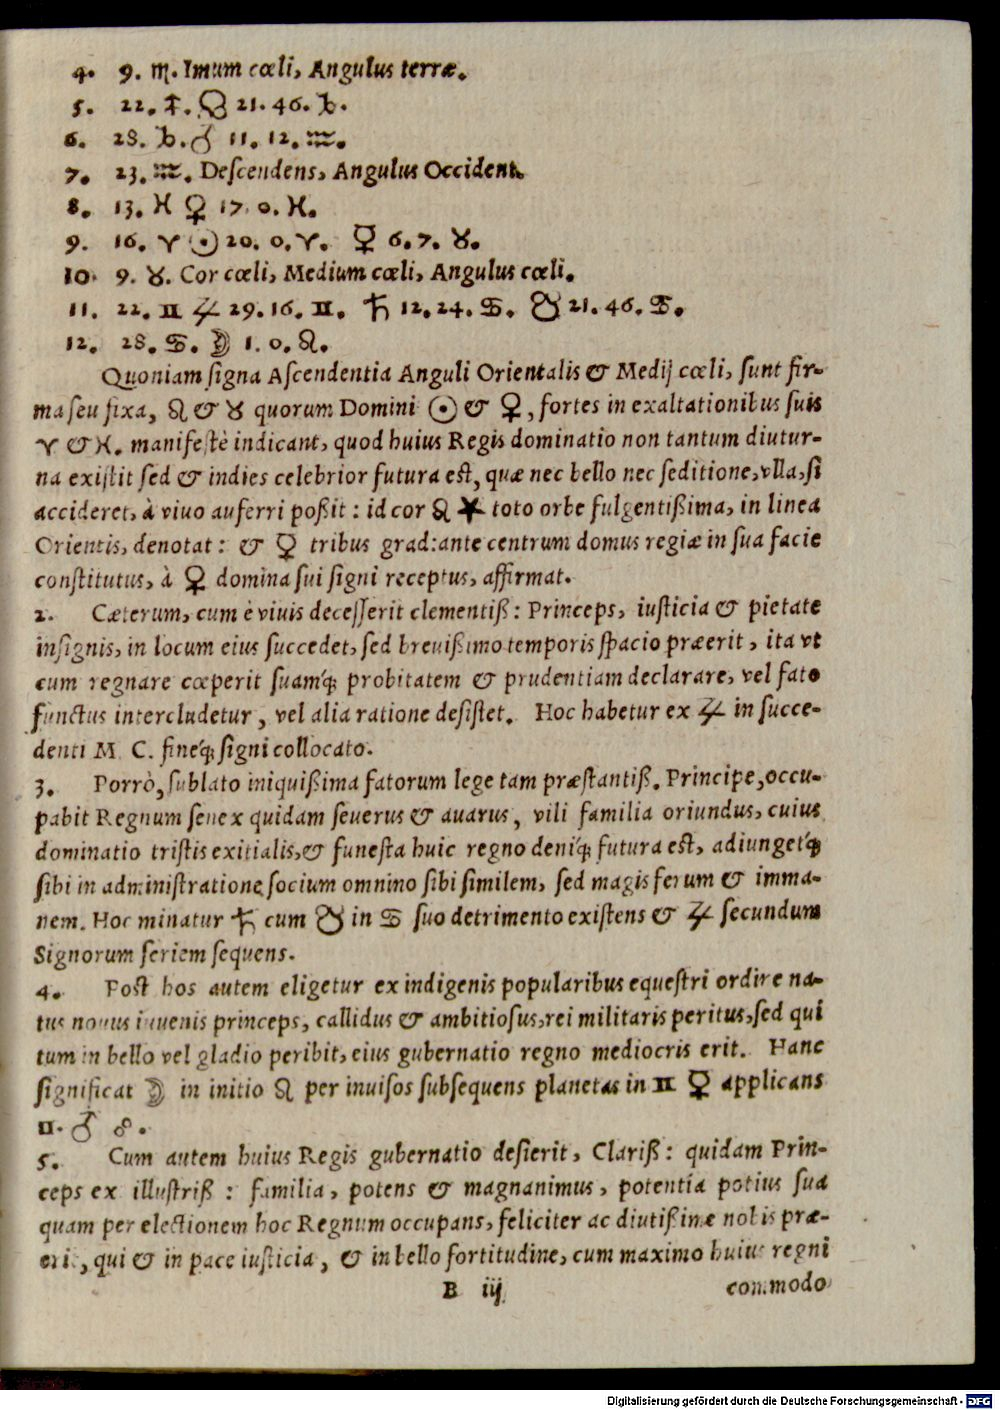 4. 9. ♏. Imum cœli, Angulus terræ.
5. 22. ♐. ☊ 21. 46. ♑.
6. 28. ♑. ♂ 11. 12. ♒.
7. 23. ♒. Deſcendens, Angulus Occident.
8. 13. ♓ ♀ 17. 0. ♓.
9. 16. ♈ ☉ 20. 0. ♈. ☿ 6. 7. ♉.
10. 9. ♉. Cor cœli, Medium cœli, Angulus cœli.
11. 22. ♊ ♃ 29. 16. ♊. ♄ 12. 24. ♋. ☋ 21. 46. ♋.
12. 28. ♋. ☽ 1. 0. ♌.
Quoniam ſigna Aſcendentia Anguli Orientalis & Medij cœli, ſunt fir-
ma ſeu fixa, ♌ & ♉ quorum Domini ☉ & ♀, fortes in exaltationibus ſuis
♈ & ♓. manifeſtè indicant, quod huius Regis dominatio non tantum diutur-
na exiſtit ſed & indies celebrior futura eſt, quæ nec bello nec ſeditione, vlla, ſi
accideret, à viuo auferri poßit : id cor ♌ ★ toto orbe fulgentißima, in linea
Orientis, denotat : & ☿ tribus grad: ante centrum domus regiæ in ſua facie
conſtitutus, à ♀ domina ſui ſigni receptus, affirmat.
2. Cæterum, cum è viuis deceſſerit clementiß: Princeps, iuſticia & pietate
inſignis, in locum eius ſuccedet, ſed breuißimo temporis ſpacio præerit, ita vt
cum regnare cœperit ſuamq́; probitatem & prudentiam declarare, vel fato
functus intercludetur, vel alia ratione deſiſtet. Hoc habetur ex ♃ in ſucce-
denti M. C. fineq́; ſigni collocato.
3. Porrò, ſublato iniquißima fatorum lege tam præſtantiß. Principe, occu-
pabit Regnum ſenex quidam ſeuerus & auarus, vili familia oriundus, cuius
dominatio triſtis exitialis, & funeſta huic regno deniq́; futura eſt, adiungetq́;
ſibi in adminiſtratione ſocium omnino ſibi ſimilem, ſed magis ferum & imma-
nem. Hoc minatur ♄ cum ☋ in ♋ ſuo detrimento exiſtens & ♃ ſecundum
Signorum ſeriem ſequens.
4. Post hos autem eligetur ex indigenis popularibus equeſtri ordine na-
tus nouus iuuenis princeps, callidus & ambitioſus, rei militaris peritus, ſed qui
tum in bello vel gladio peribit, eius gubernatio regno mediocris erit. Hanc
ſignificat ☽ in initio ♌ per inuiſos ſubſequens planetas in ♊ ☿ applicans
II. ♂ ☍.
5. Cum autem huius Regis gubernatio deſierit, Clariß: quidam Prin-
ceps ex illuſtriß : familia, potens & magnanimus, potentia potius ſua
quam per electionem hoc Regnum occupans, feliciter ac diutißime nobis præ-
erit, qui & in pace iuſticia, & in bello fortitudine, cum maximo huius regni
B iij commodo
Digitalisierung gefördert durch die Deutsche Forschungsgemeinschaft - DFG